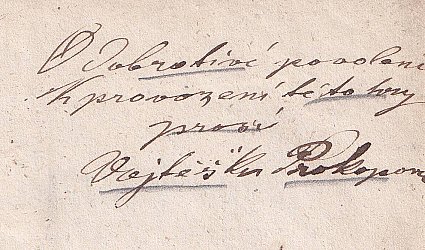 O dobrotivé povolení
k provození této hry
prosí
Vojtěšku Prokopov